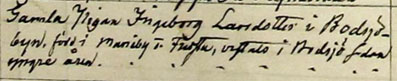 Gamla Pigan Ingeborg Larsdotter i Bodsjö-
byn, född i Mariby i        , vistats i Bodsjö sedan
yngre åren.